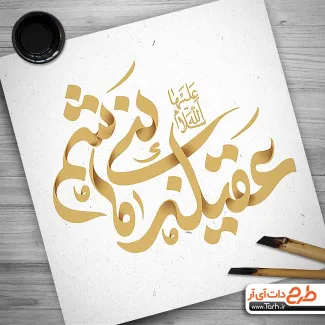 عقیله بنی هاشم
علیها السلام
طرح دات آی آر
www.Tarh.ir